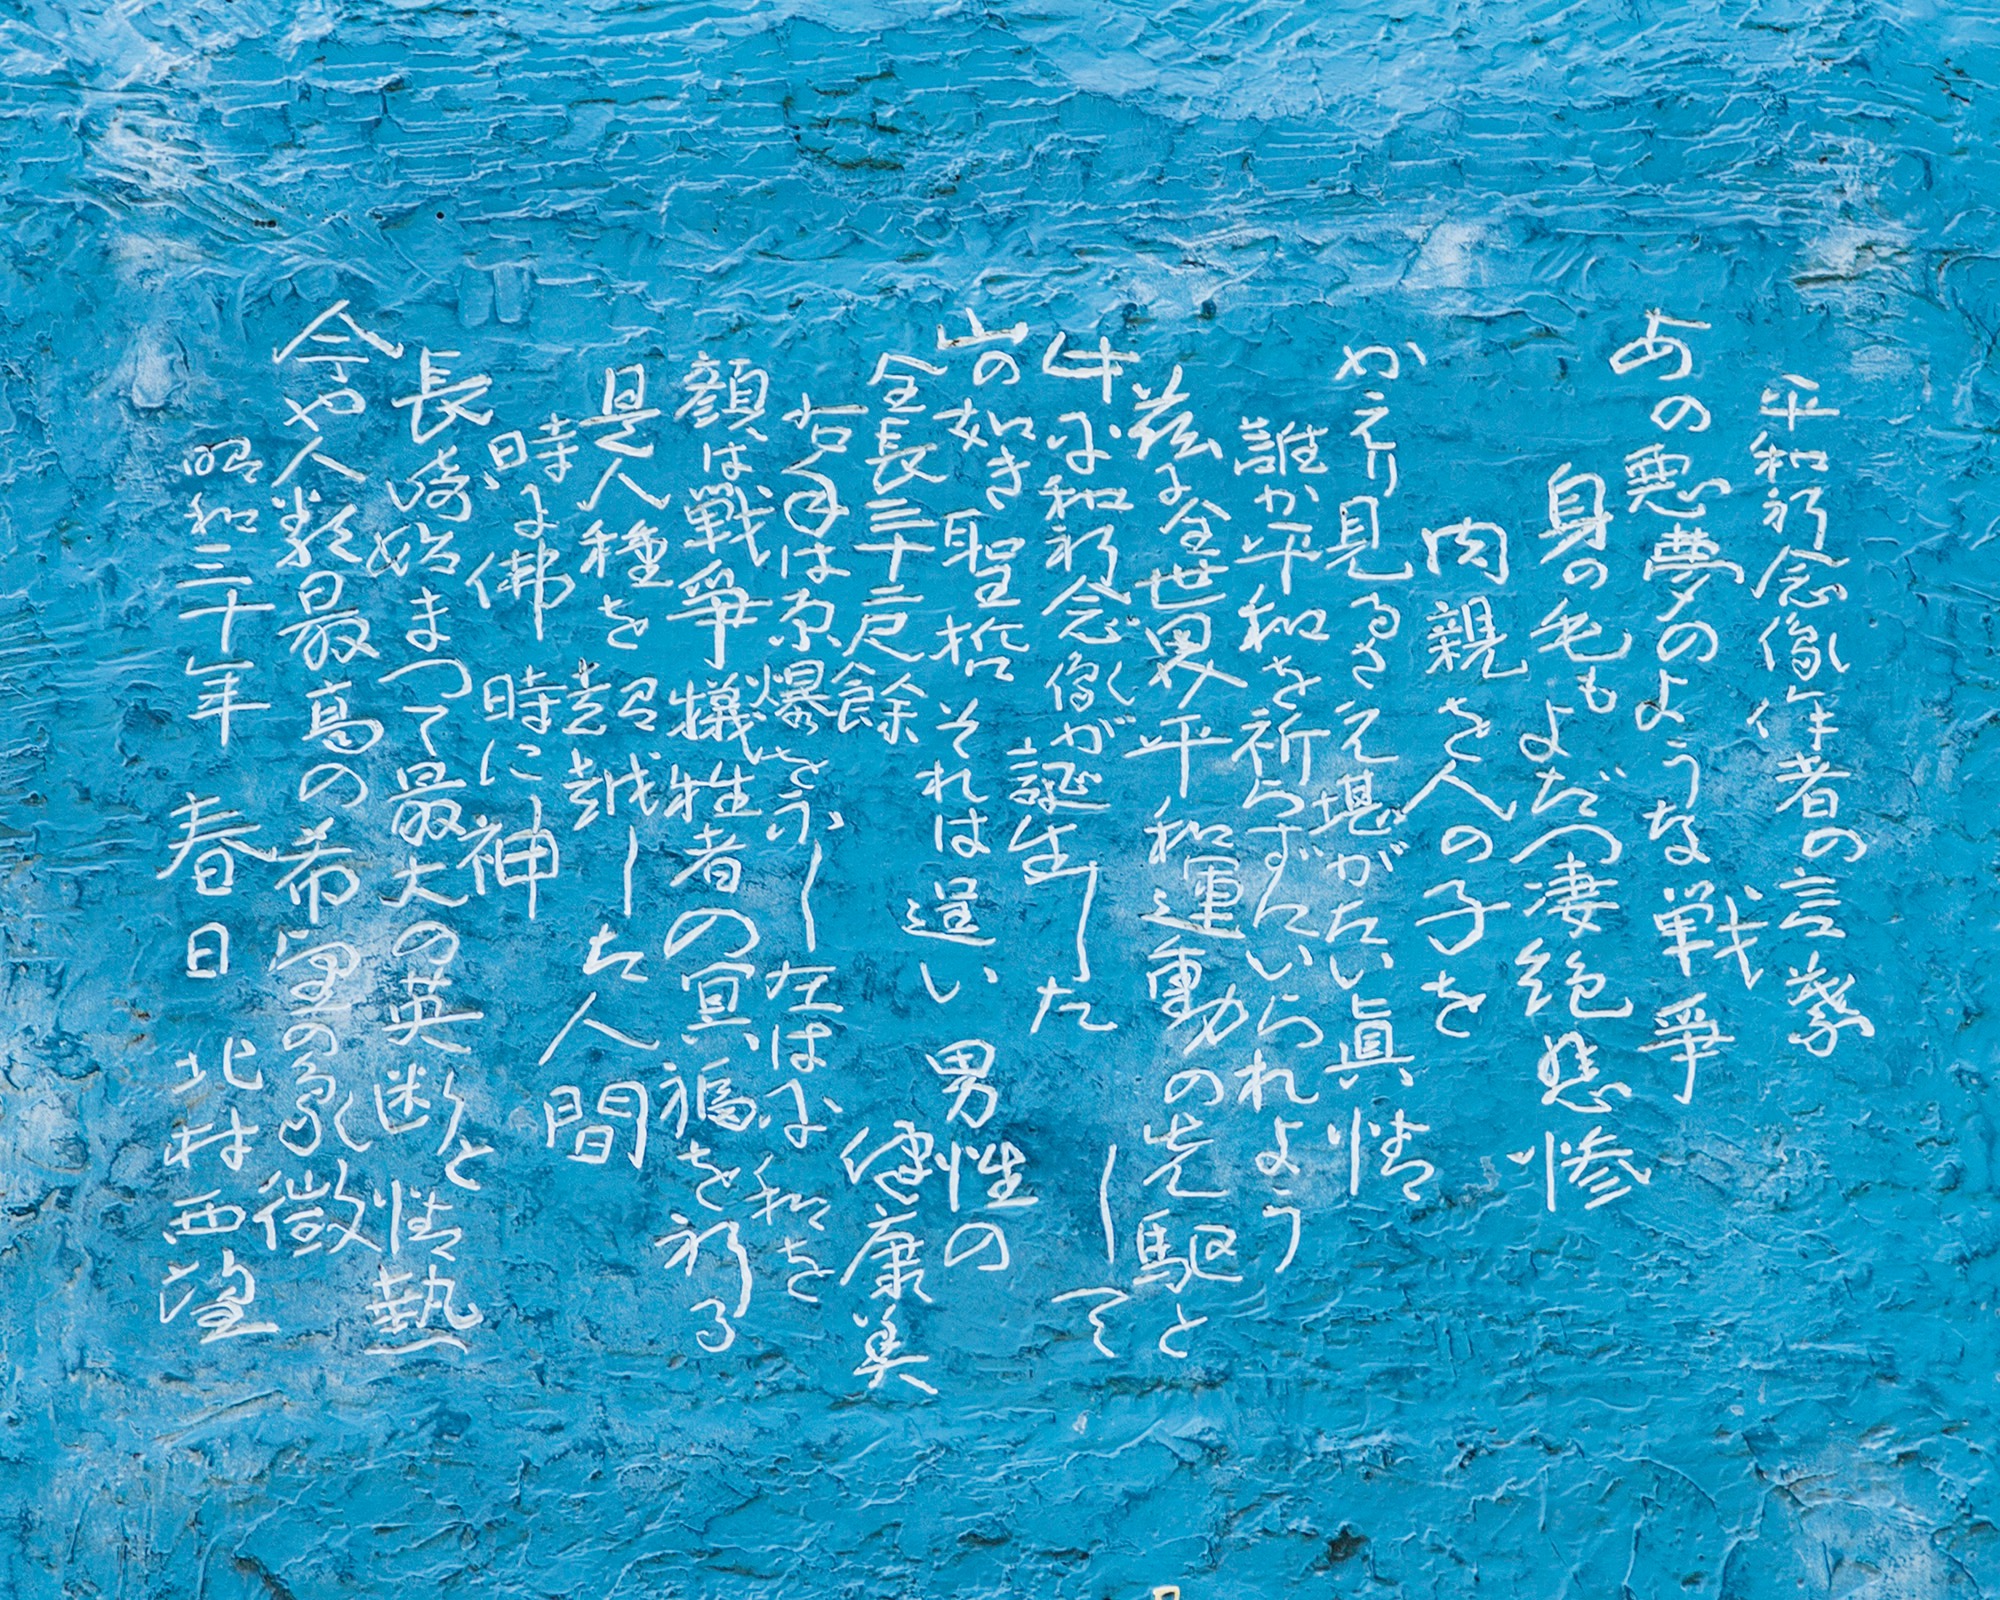 平和祈念像作者の言葉
あの悪夢のような戦争
身の毛もよだつ凄絶悲惨
肉親を人の子を
かえり見るさえ堪がたい眞情
誰か平和を祈らずにいられよう
茲に全世界平和運動の先駆として
この平和祈念像が誕生した
山の如き聖哲それは逞い男性の健康美
全長三十二尺餘
右手は原爆を示し左は平和を
顔は戦争犠牲者の冥福を祈る
是人種を超越した人間
時に佛 時に神
長崎始まつて最大の英断と情熱
今や人類最高の希望の象徴
昭和三十年 春日 北村西望